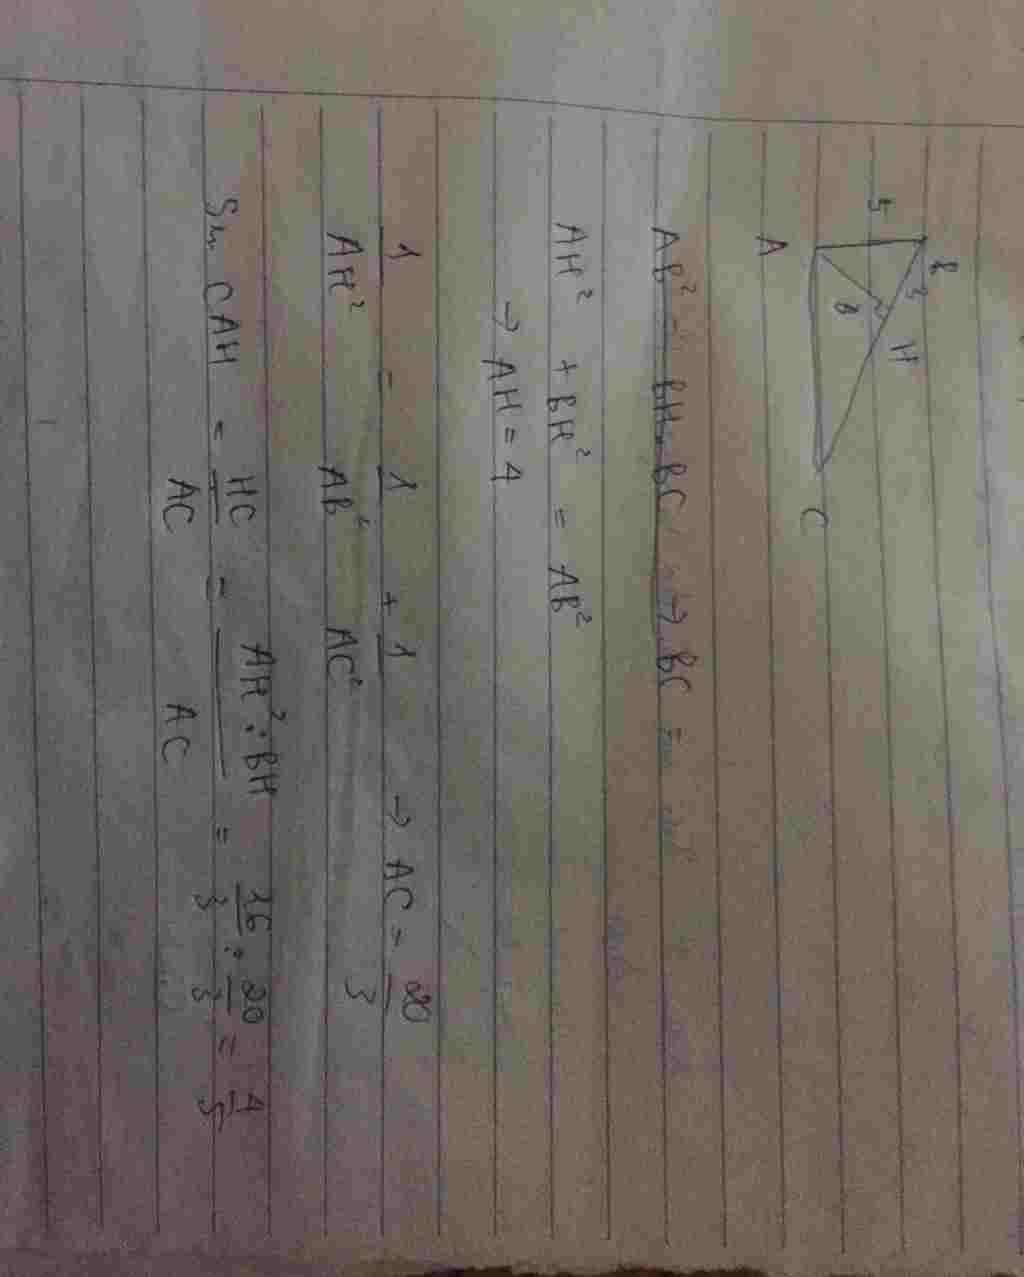 B
5
3
H
A
C
AB² = BH.BC → BC =
AH² + BH² = AB²
→ AH = 4
1/AH² = 1/AB² + 1/AC² → AC = 20/3
Sin CAH = HC/AC = AH² : BH/AC = 16/3 : 20/3 = 4/5